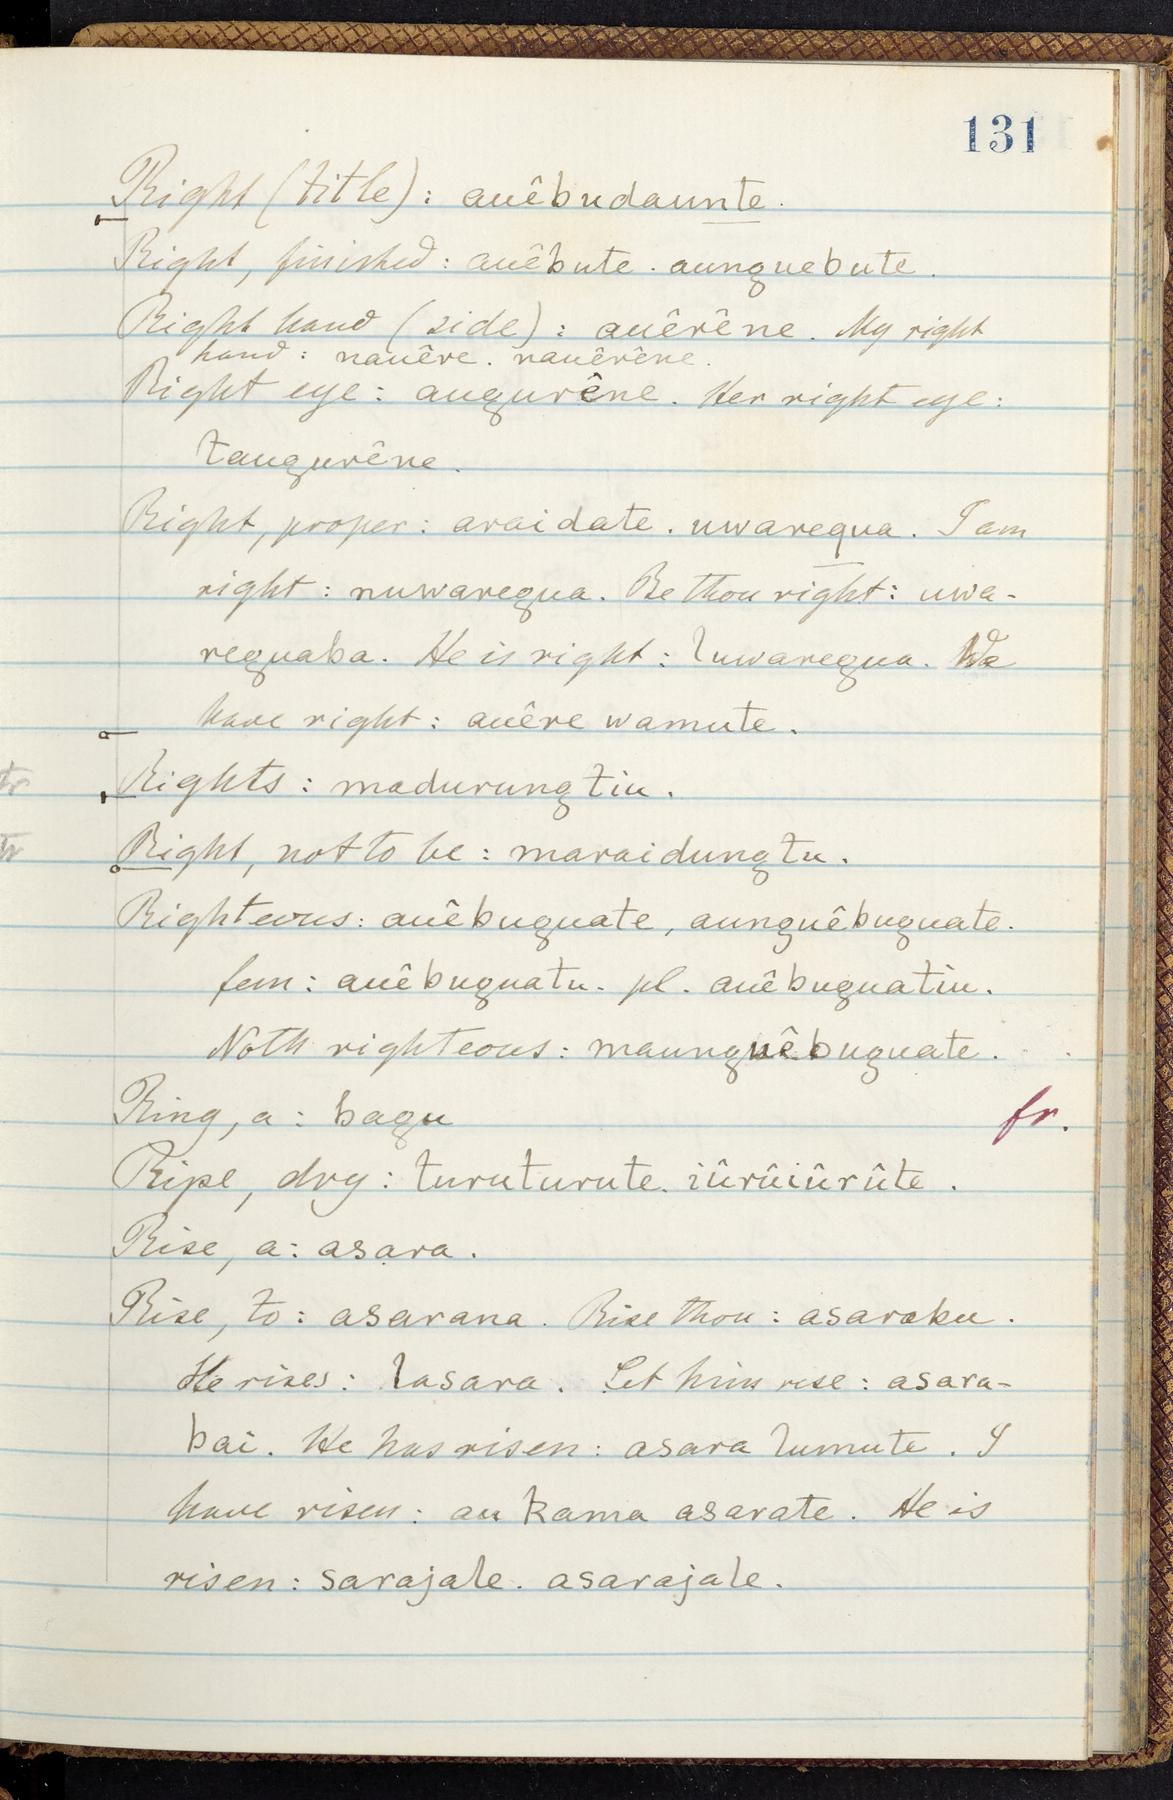 131
Right (title): auêbudaunte.
Right, finished: auêbute. aunguebute.
Right hand (side): auêrêne. My right
hand: nauêre. nauêrêne.
Right eye: augurêne. Her right eye:
taugurêne.
Right, proper: araidate. uwaregua. I am
right: nuwaregua. Be thou right: uwa-
reguaba. He is right: luwaregua. We
have right: auêre wamute.
Rights: madurungtiu.
Right, not to be: maraidungtu.
Righteous: auêbuguate, aunguêbuguate.
fem: auêbuguatu. pl. auêbuguatiu.
Noth righteous: maunguêbuguate.
Ring, a: bagu
fr.
Ripe, dry: turuturute. iûrûiûrûte.
Rise, a: asara.
Rise, to: asarana. Rise thou: asaraku.
He rises: lasara. Let him rise: asara-
bai. He has risen: asara lumute. I
have risen: au kama asarate. He is
risen: sarajale. asarajale.